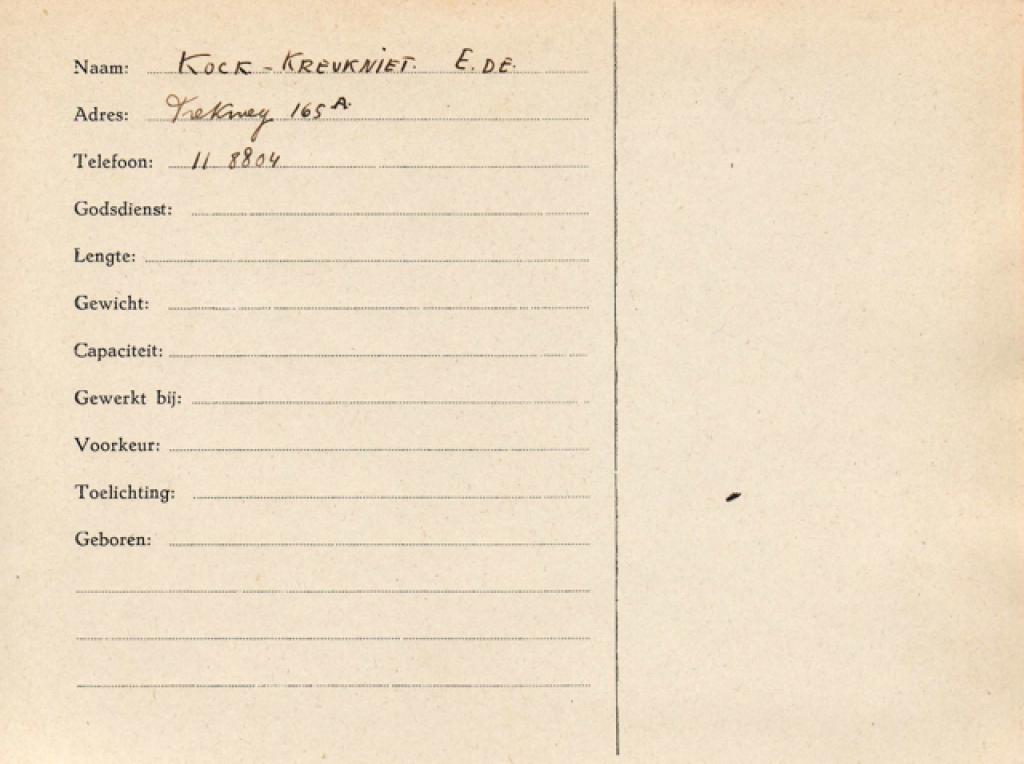 Naam: KOCK - KREUKNIET. E. DE.
Adres: Trekweg 165 A.
Telefoon: 11 8804
Godsdienst:
Lengte:
Gewicht:
Capaciteit:
Gewerkt bij:
Voorkeur:
Toelichting:
Geboren: